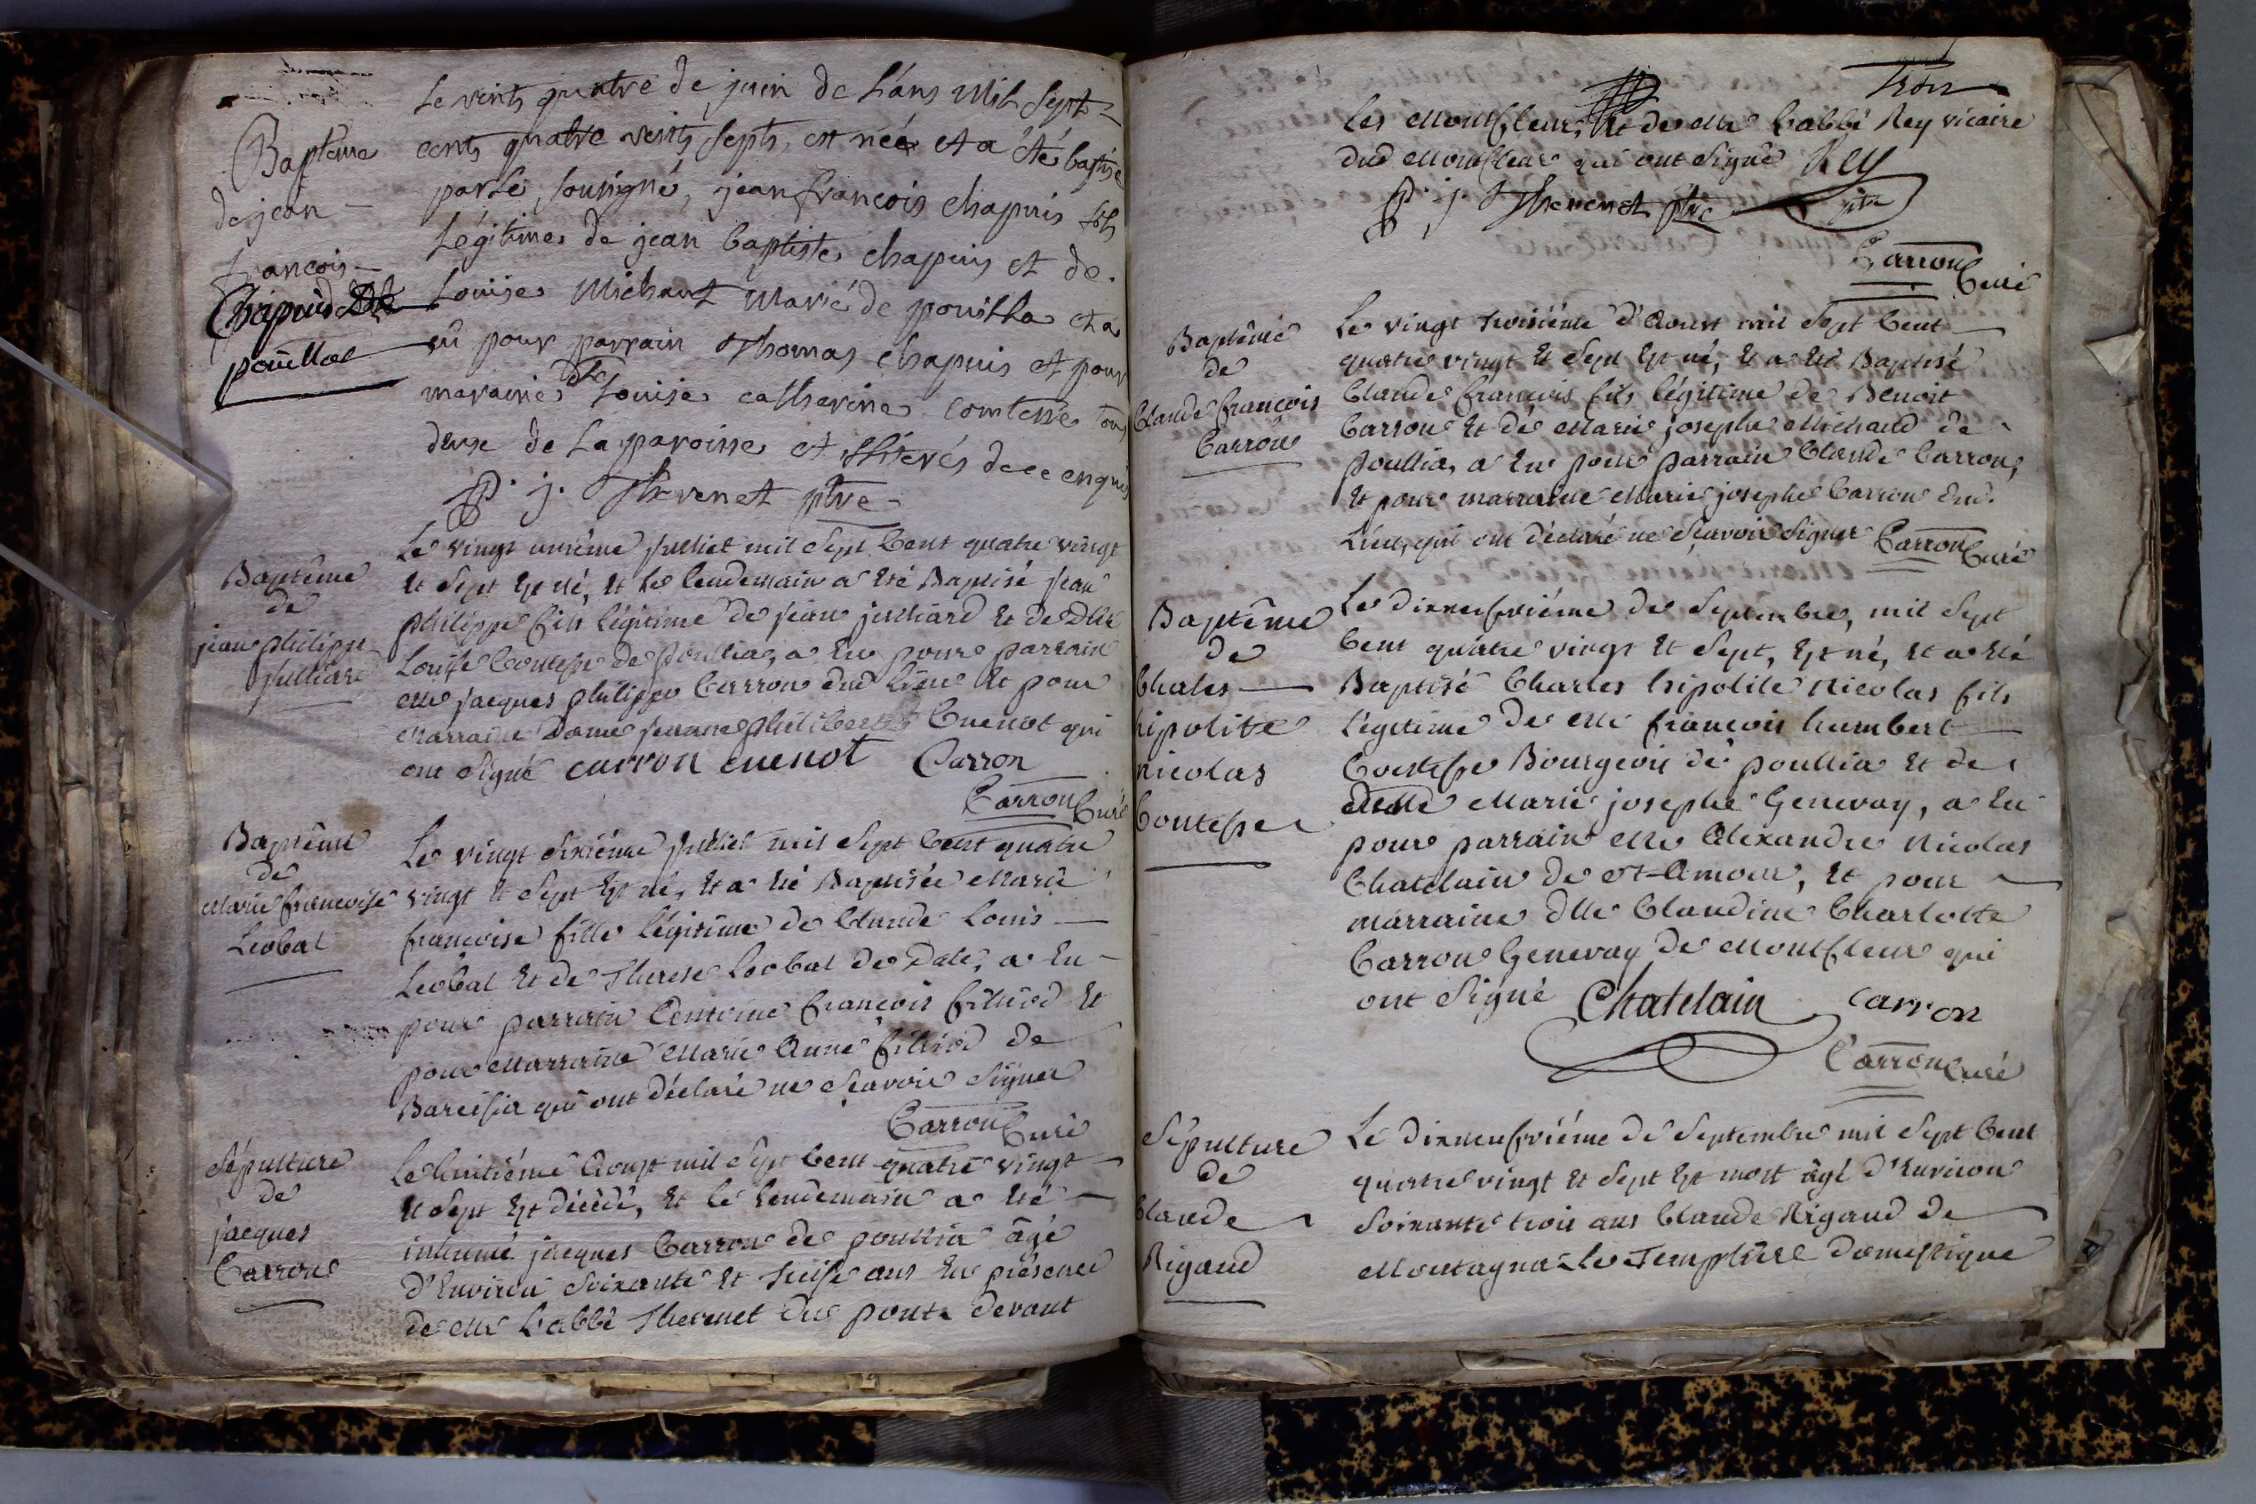 Baptême
de jean -
francois -
Chapuis de
pouilla
Le vints quatre de juin de L'ans Mil Sept -
cents quatre vints septs, est née et a été baptisé
par Le, sousigné, jean francois chapuis fils
Légitimes de jean baptiste chapuis et de
Louise Michaut Marié de pouilla et a
eû pour parrain Thomas chapuis et pour
maraine dlle Louise catherine comtesse tous
deux de La paroisse et Illiterés de ce enquis
P. j. Thevenet ptre -
Baptême
de
jean philippe
julliard
Le vingt unième juillet mil Sept Cent quatre vingt
et Sept Est né, et le lendemain a été Baptisé jean
philippe fils légitime de jean julliard et de Dlle
Louise Contesse de poullia, a Eu pour parrain
Mr jacques philippe Carron dud Lieu et pour
Marraine Dame jeanne philiberte Cuenot qui
ont Signé carron cuenot Carron
Carron Curé
Baptême
de
Marie françoise
Léobal
Le vingt Sixième juillet mil Sept Cent quatre
vingt et Sept Est né, et a été Baptisée Marie
françoise fille légitime de Claude Louis -
Léobal et de Therese Léobal de Date, a Eu -
pour parrain Antoine françois filliod et
pour Marraine Marie Anne filliod de
Barcisia qui ont déclaré ne Sçavoir Signer
Carron Curé
Sépulture
de
jacques
Carron
Le huitième Aoust mil Sept Cent quatre vingt -
et Sept Est décédé, et le lendemain a été -
inhumé jacques Carron de poullia âgé
d'Environ Soixante et treise ans En présence
de Mr L'abbé Thevenet du pont devant
Les Montfleur, et de Mr L'abbé Rey vicaire
dud Montfleur qui ont Signé Rey
P. j. Thevenet ptre ptre
Carron Curé
Baptême
de
Claude françois
Carron
Le vingt troisième d'Aoust mil Sept Cent -
quatre vingt et Sept Est né, et a été Baptisé
Claude françois fils légitime de Benoit
Carron et de Marie josephe Michaud de
poullia, a Eu pour parrain Claude Carron,
et pour marraine Marie josephe Carron dud.
Lieu, qui ont déclaré ne Sçavoir Signer Carron Curé
Baptême
de
Chales -
hipolite
nicolas
Contesse
Le dixneufvième de Septembre, mil Sept
Cent quatre vingt et Sept, Est né, et a été
Baptisé Charles hipolite Nicolas fils
légitime de Mr françois humbert -
Contesse Bourgeois de poullia et de
delle Marie josephe Genevay, a Eu
pour parrain Mr Alexandre Nicolas
Chatelain de St-Amour, et pour -
marraine dlle Claudine Charlotte
Carron Genevay de Montfleur qui
ont Signé Chatelain carron
Carron Curé
Sépulture
de
Claude
Rigaud
Le dixneufvième de Septembre mil Sept Cent
quatre vingt et Sept Est mort âgé d'Environ
Soixante trois ans Claude Rigaud de -
Montagna-le-Templiere domestique